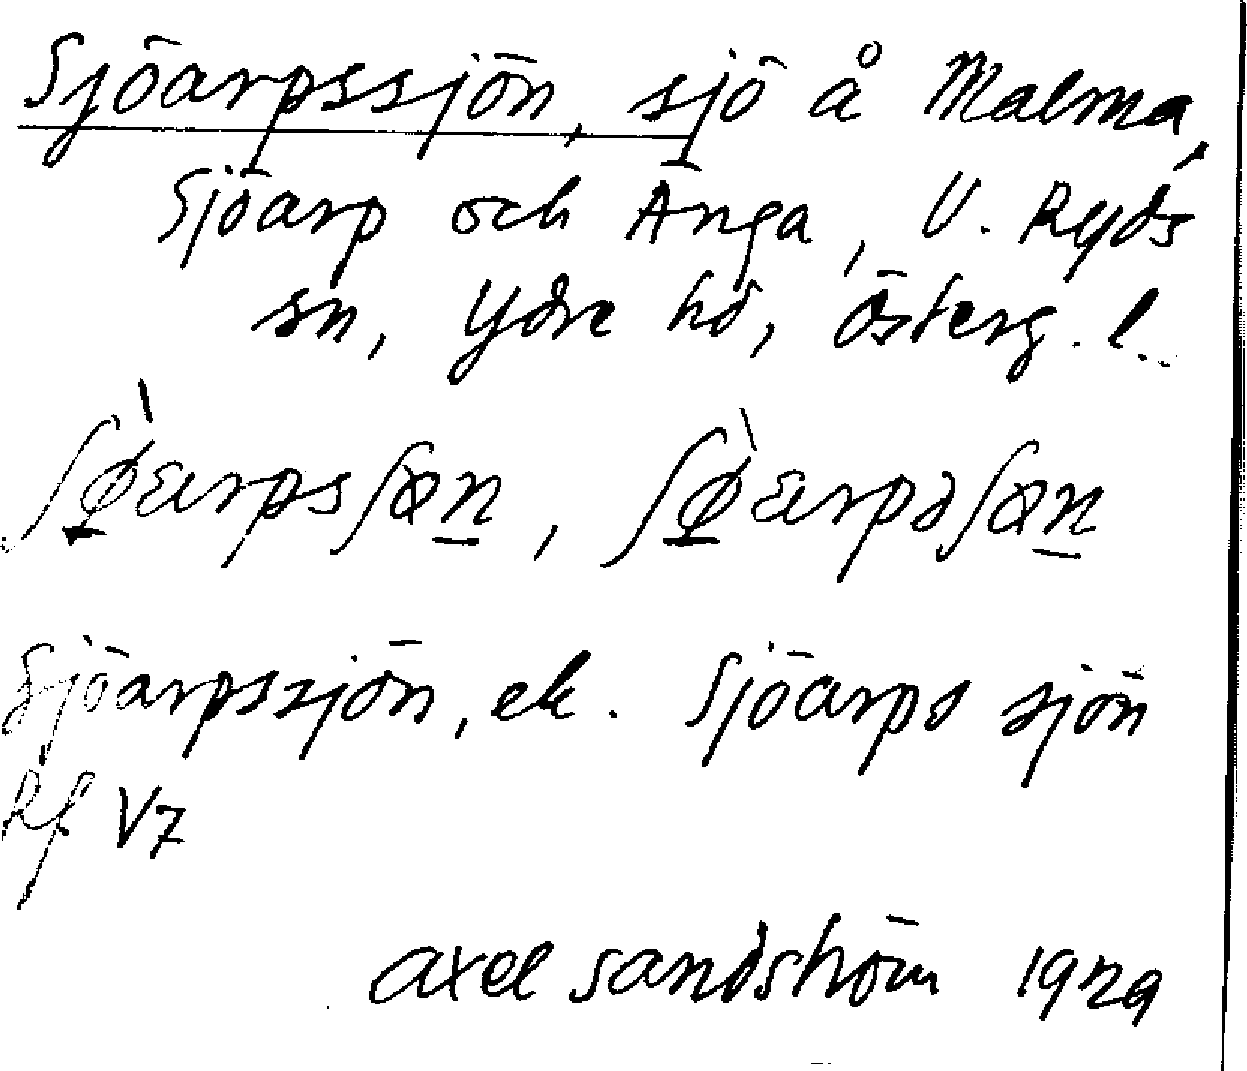 Sjöarpssjön, sjö å Malma,
Sjöarp och Änga, V. Ryds
sn, Ydre hd, Österg. l.
ʃø̀ɛarpsʃøn, ʃø̀ɛarpəʃøn
Sjöarpssjön, ek. Sjöarps sjön
Rf V7
Axel Sandström 1929